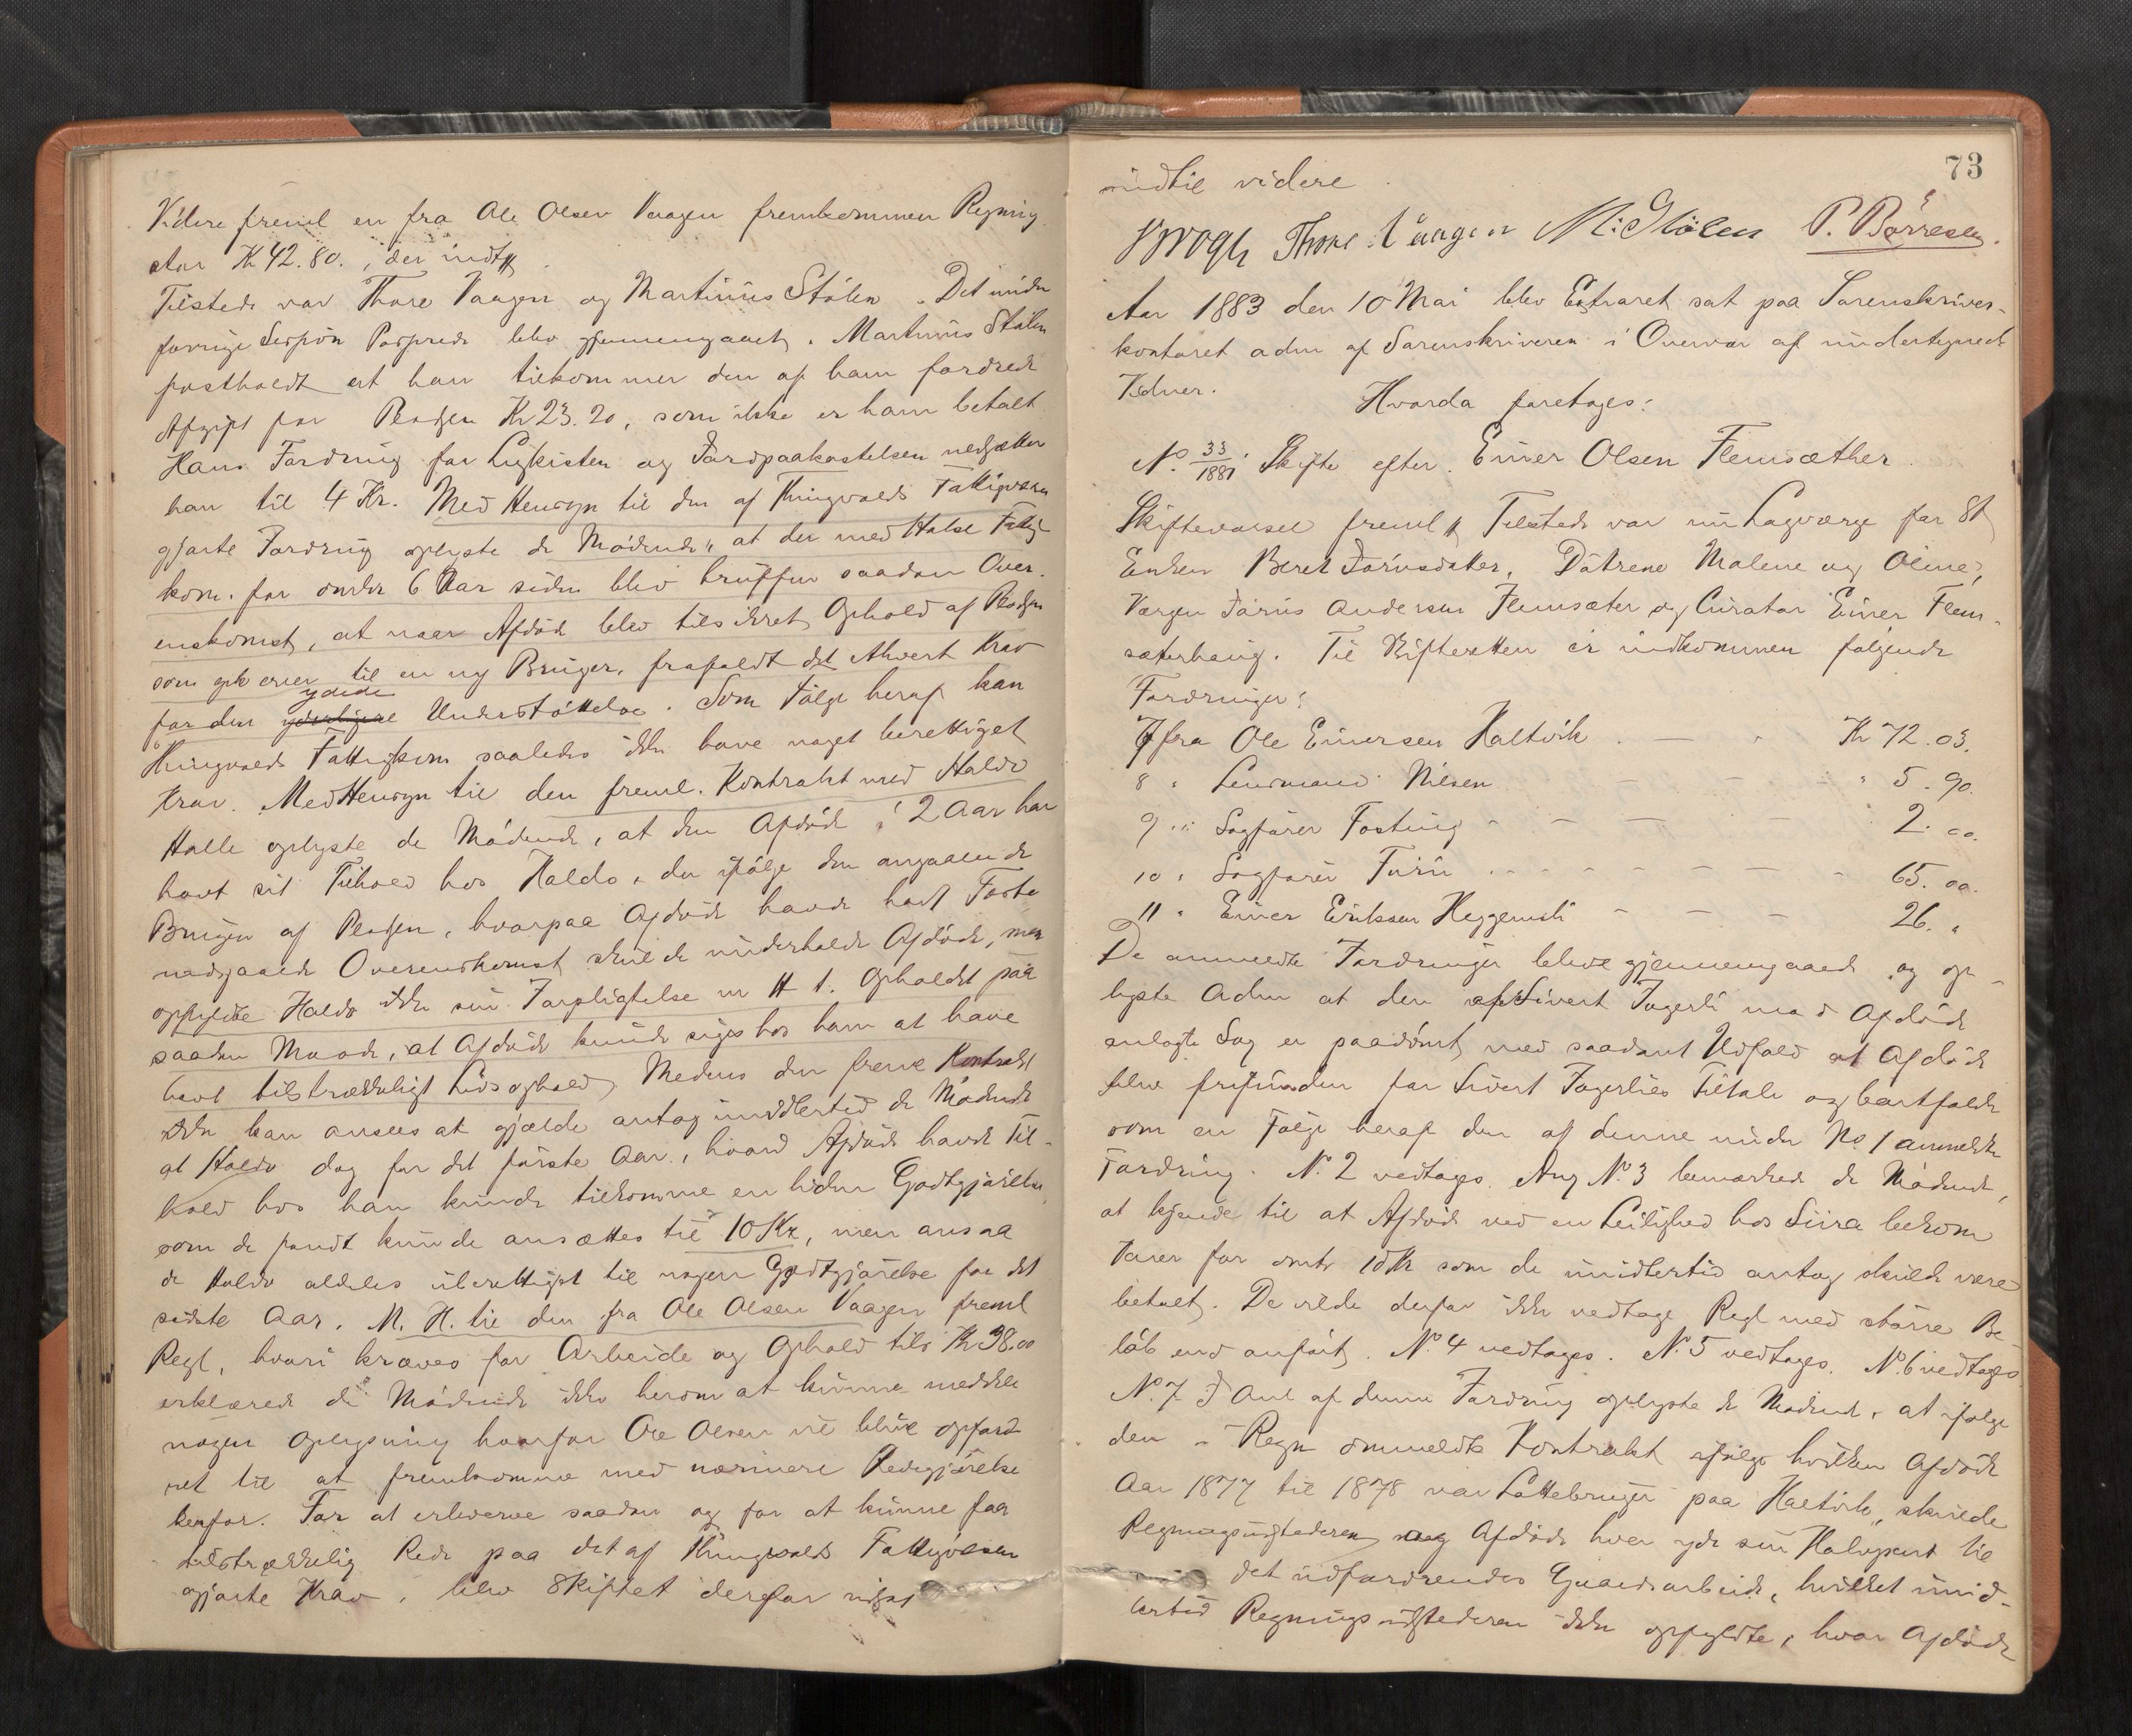 Videre freml en fra Ole Olsen Vaagen fremkommen Regning
stor Kr 42.80., der indt
Tilstede var Thore Vaagen og Martinus Stölen. Det under
forrige Session Passerede blev gjennemgaaet. Martinus Stölen
fastholdt at han tilkommer den af ham fordrede
Afgift for Pladsen Kr 23.20, som ikke er ham betalt
Hans Fordring for Ligkisten og Jordpaakastelsen nedsætter
han til 4 Kr. Med Hensyn til den af Thingvolds Fattigvæsen
gjorte Fordring oplyste de Mödende, at der med Halse Fattig
kom. for omtr 6 Aar siden blev truffen saadan Over
enskomst, at naar Afdöde blev tilsikret Ophold af Pladsen
som gik over til en ny Bruger, frafaldt det ethvert Krav
for den yderligere ydede Understöttelse. Som Fölge heraf kan
Thingvolds Fattigkom saaledes ikke have noget berettiget
Krav. Med Hensyn til den freml. Kontrakt med Haldo
Halle oplyste de Mödende, at den Afdöde i 2 Aar har
havt sit Tilhold hos Haldo, der ifölge den angaaende
Brugen af Pladsen, hvorpaa Afdöde havde havt Feste
indgaaede Overenskomst skulde underholde Afdöde, men
opfyldte Haldo ikke sin Forpligtelse m H t. Opholdet paa
saadan Maade, at Afdöde kunde siges hos ham at have
havt tilstrækkeligt Livsophold. Medens den freml Kontrakt
ikke kan ansees at gjælde antog imidlertid de Mödende
at Haldo dog for det förste Aar, hvori Afdöde havde Til-
hold hos han kunde tilkomme en liden Godtgjörelse,
som de fandt kunde ansættes til 10 Kr, men ansaa
de Haldo aldeles uberettiget til nogen Godtgjörelse for det
sidste Aar. M. H. til den fra Ole Olsen Vaagen freml
Regl, hvori kræves for Arbeide og Ophold tils Kr 38.00
erklærede de Mödende ikke herom at kunne meddele
nogen Oplysning hvorfor Ole Olsen vil blive opford
ret til at fremkomme med nærmere Redegjörelse
herfor. For at erhverve saadan og for at kunne faa
tilstrækkelig Rede paa det af Thingvolds Fattigvæsen
gjorte Krav, blev Skiftet derfor udsat
73
indtil videre.
Brogh Thore Vaagen M. Stölen P. Börresen.
Aar 1883 den 10 Mai blev Extraret sat paa Sorenskriver-
kontoret adm af Sorenskriveren i Overvær af undertegnede
Vidner.
Hvorda foretoges:
No. 33/1881: Skifte efter Einer Olsen Flemsæther.
Skiftevarsel freml Tilstede var nu Lagværge for St
Enken Beret Jörnsdatter, Dötrene Malene og Oline,
Værgen Jörns Andersen Flemsæter og Curator Einer Flem-
sæterhaug. Til Skifteretten er indkommen fölgende
Fordringer:
7 fra Ole Einersen Haltvik . — . Kr 72.03.
8 " Lensmand Nilsen — — " 5.90.
9 " Sagförer Fosting - — — — — 2.00.
10 " Sagförer Turu - - - — — — — - 65.00.
11 " Einer Eriksen Heggemsli - — — 26. "
De anmeldte Fordringer bleve gjennemgaaede og op-
lyste Adm at den af Sivert Fagerli mod Afdöde
anlagte Sag er paadömt med saadant Udfald at Afdöde
blev frifunden for Sivert Fagerlies Tiltale og bortfalder
som en Fölge heraf den af denne under No 1 anmeldte
Fordring. No. 2 vedtages. Ang No. 3 bemærkede de Mödende,
at kjende til at Afdöde ved en Leilighed hos Siira bekom
Varer for omtr 10 Kr som de imidlertid antog skulde være
betalt. De vilde derfor ikke vedtage Regl med större Be
löb end anfört. No. 4 vedtages. No. 5 vedtages. No. 6 vedtages
No. 7 I Anl af denne Fordring oplyste de Mödende, at ifölge
den i Regn ommeldte Kontrakt ifölge hvilken Afdöde
Aar 1877 til 1878 var Lottebruger paa Haltvik, skulde
Regningsudstederen og Afdöde hver yde sin Halvpart til
det udfordrende Gaardsarbeide, hvilket imid-
lertid Regningsudstederen ikke opfyldte, hvor Afdöde